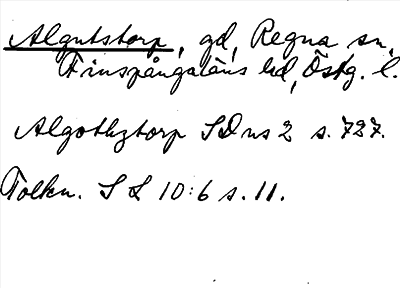 Algutstorp, gd, Regna sn,
Finspångaläns hd, Östg. l.
Algothztorp SD ns 2 s. 727.
Tolkn. S L 10:6 s. 11.